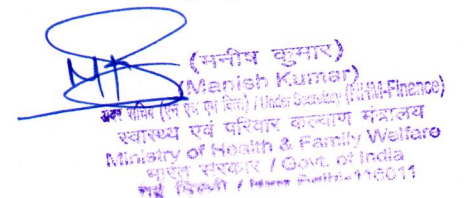 (मनीष कुमार)
(Manish Kumar)
अवर सचिव (एन एच एम वित्त) / Under Secretary (NHM-Finance)
स्वास्थ्य एवं परिवार कल्याण मंत्रालय
Ministry of Health & Family Welfare
भारत सरकार / Govt. of India
नई दिल्ली / Delhi-110011